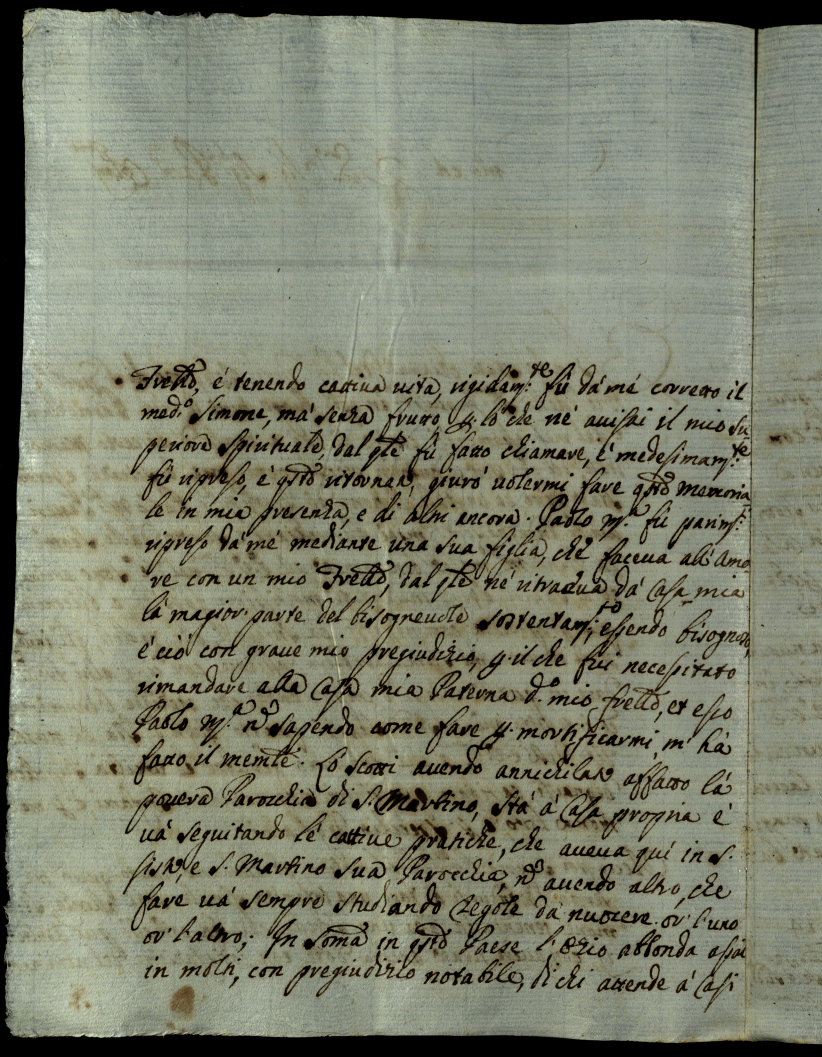 Frello, é tenendo cattiva vita, rigidam.te fù dà mé corretto il
med.o Simone, mà senza frutto, p. lo che né avisai il mio Su-
periore Spirituale, dal qle fù fatto chiamare, é medesimam.te
fù ripreso, é qsto ritornan, giurò volermi fare qsto memoria-
le in mia presenza, e di altri ancora. Paolo M.a fù parim.
ripreso dà mé mediante una sua figlia, che faceva all'Amo-
re con un mio Frello, dal qle né ritraeva dà Casa mia
là magior parte del bisognevole sostentam.to, essendo bisognoso,
é ciò con grave mio pregiudizio, p. il che fui necessitato
rimandare alla Casa mia Paterna d.o mio frello, et esso
Paolo M.a nõ sapendo come fare p. mortificarmi, m'hà
fatto il memle. Lo Scotti avendo annichilato affatto là
povera Parocchia di S. Martino, stà à Casa propria é
và seguitando lé cattive pratiche, che aveva quì in S.
Sisto, e S. Martino sua Parocchia, nõ avendo altro, che
fare và sempre studiando Regole da nuocere or' l'uno
or' l'altro; In soma in qsto Paese l'Ozio abbonda assai
in molti, con pregiudizio notabile, di chi attende à Casi